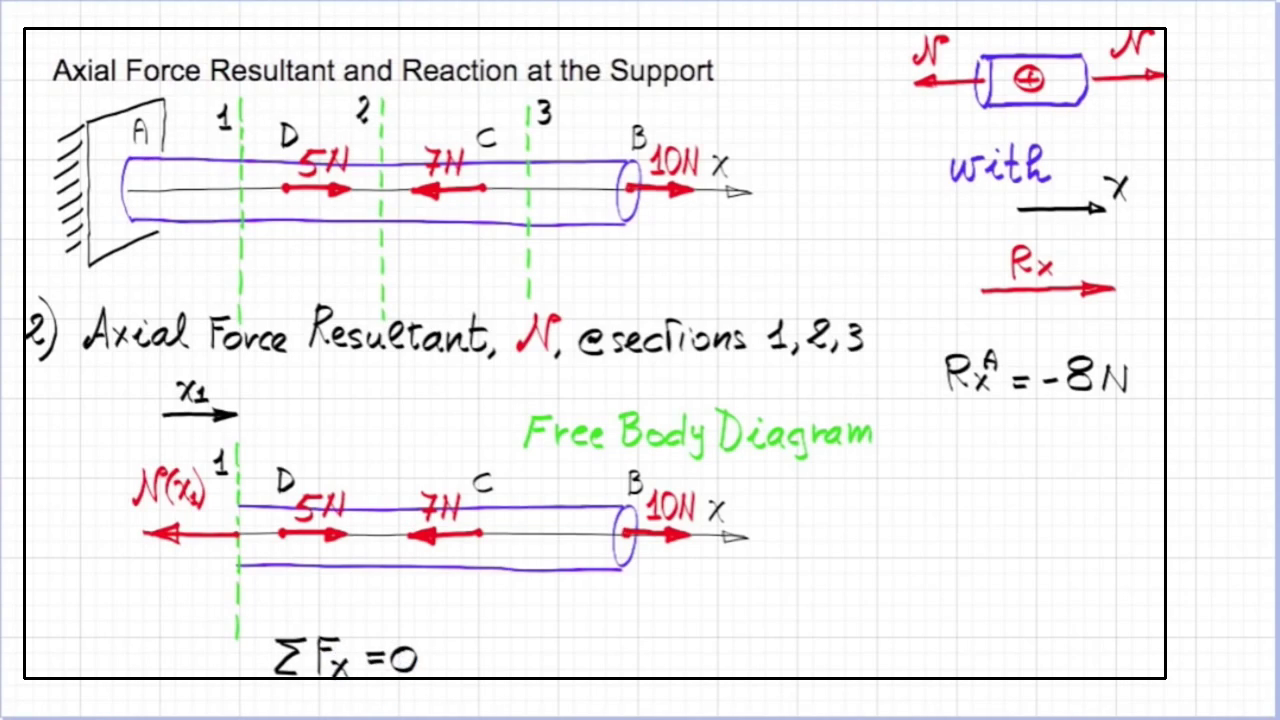 Axial Force Resultant and Reaction at the Support
N N
A 1 D 5N 2 7N C 3 B 10N x
with
x
Rx
2) Axial Force Resultant, N, @sections 1,2,3
RxA = -8N
x1
Free Body Diagram
N(x1) 1 D 5N 7N C B 10N x
ΣFx = 0